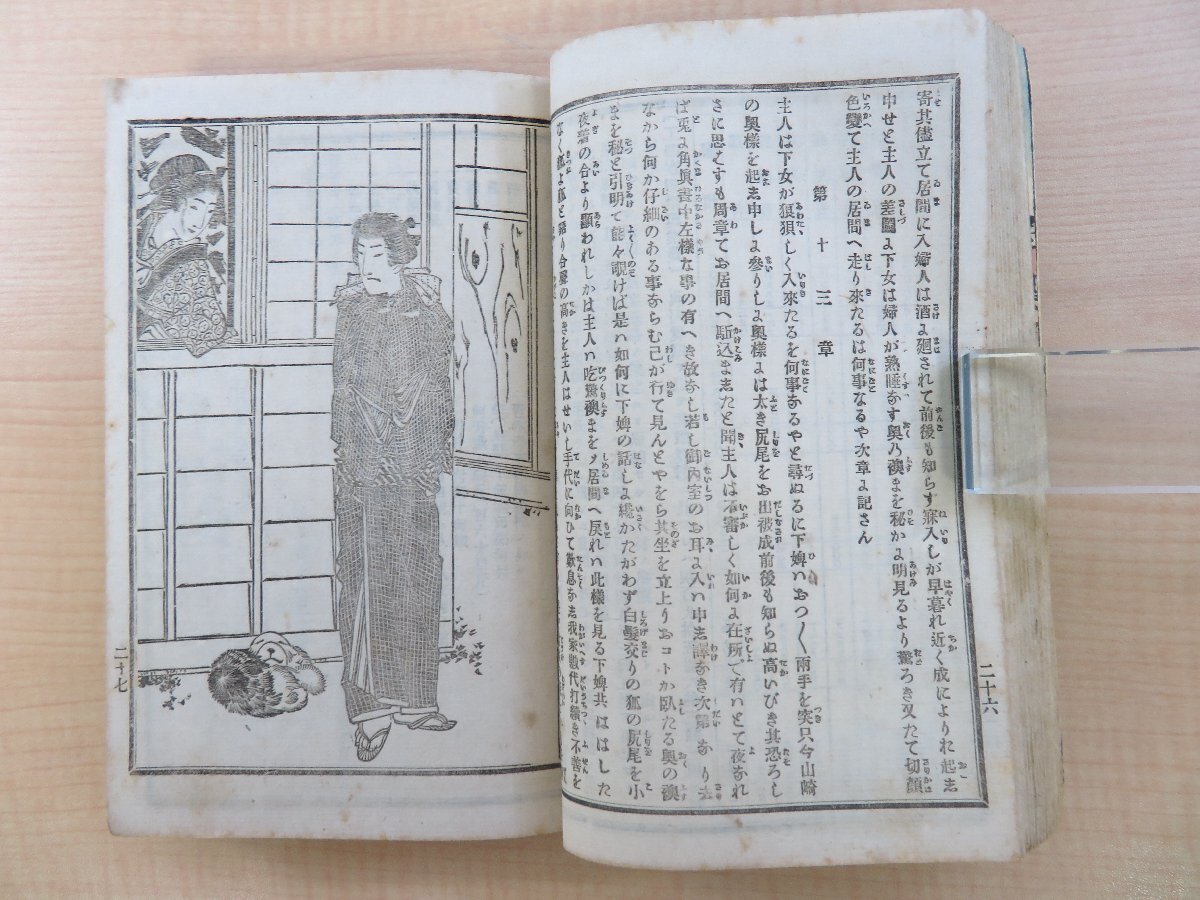 寄其儘立て居間に入婦人は酒ょ廻されて前後も知らす寐入しが早暮れ近く成によりれ起志
申せと主人の差圖ょ下女は婦人が熟睡なす奥乃襖まを秘かょ明見るより驚ろき又たて切顔
色變て主人の居間へ走り來たるは何事なるや次章ょ記さん
第十三章
主人は下女が狼狽しく入來たるを何事なるやと尋ぬるに下婢ハおつ〱兩手を突只今山崎
の奥樣を起志申しょ參りしょ奥樣ょは太き尻尾をお出被成前後も知らぬ高いびき其恐ろし
さに思えすも周章てお居間へ駈込ま志たと聞主人は不審しく如何ょ在所で有ハとて夜なれ
ば兎ょ角眞晝中左樣な事の有へき故なし若し御内室のお耳ょ入ハ申志譯なき次第なり去
なから何か仔細のある事ならむ己が行て見んとやをら其坐を立上りおコトか臥たる奥の襖
まを秘と引明て能々覗けば是ハ如何に下婢の話しょ違かたがわず白髮交りの狐の尻尾を小
夜着の合より顯われしかは主人ハ吃驚襖まを〆居間へ戻れハ此樣を見る下婢共はばした
なく狐ょ狐と語り合聲の高きを主人はせいし手代に向ひて歎息な志我家數代打續き不善を
二十六
二十七